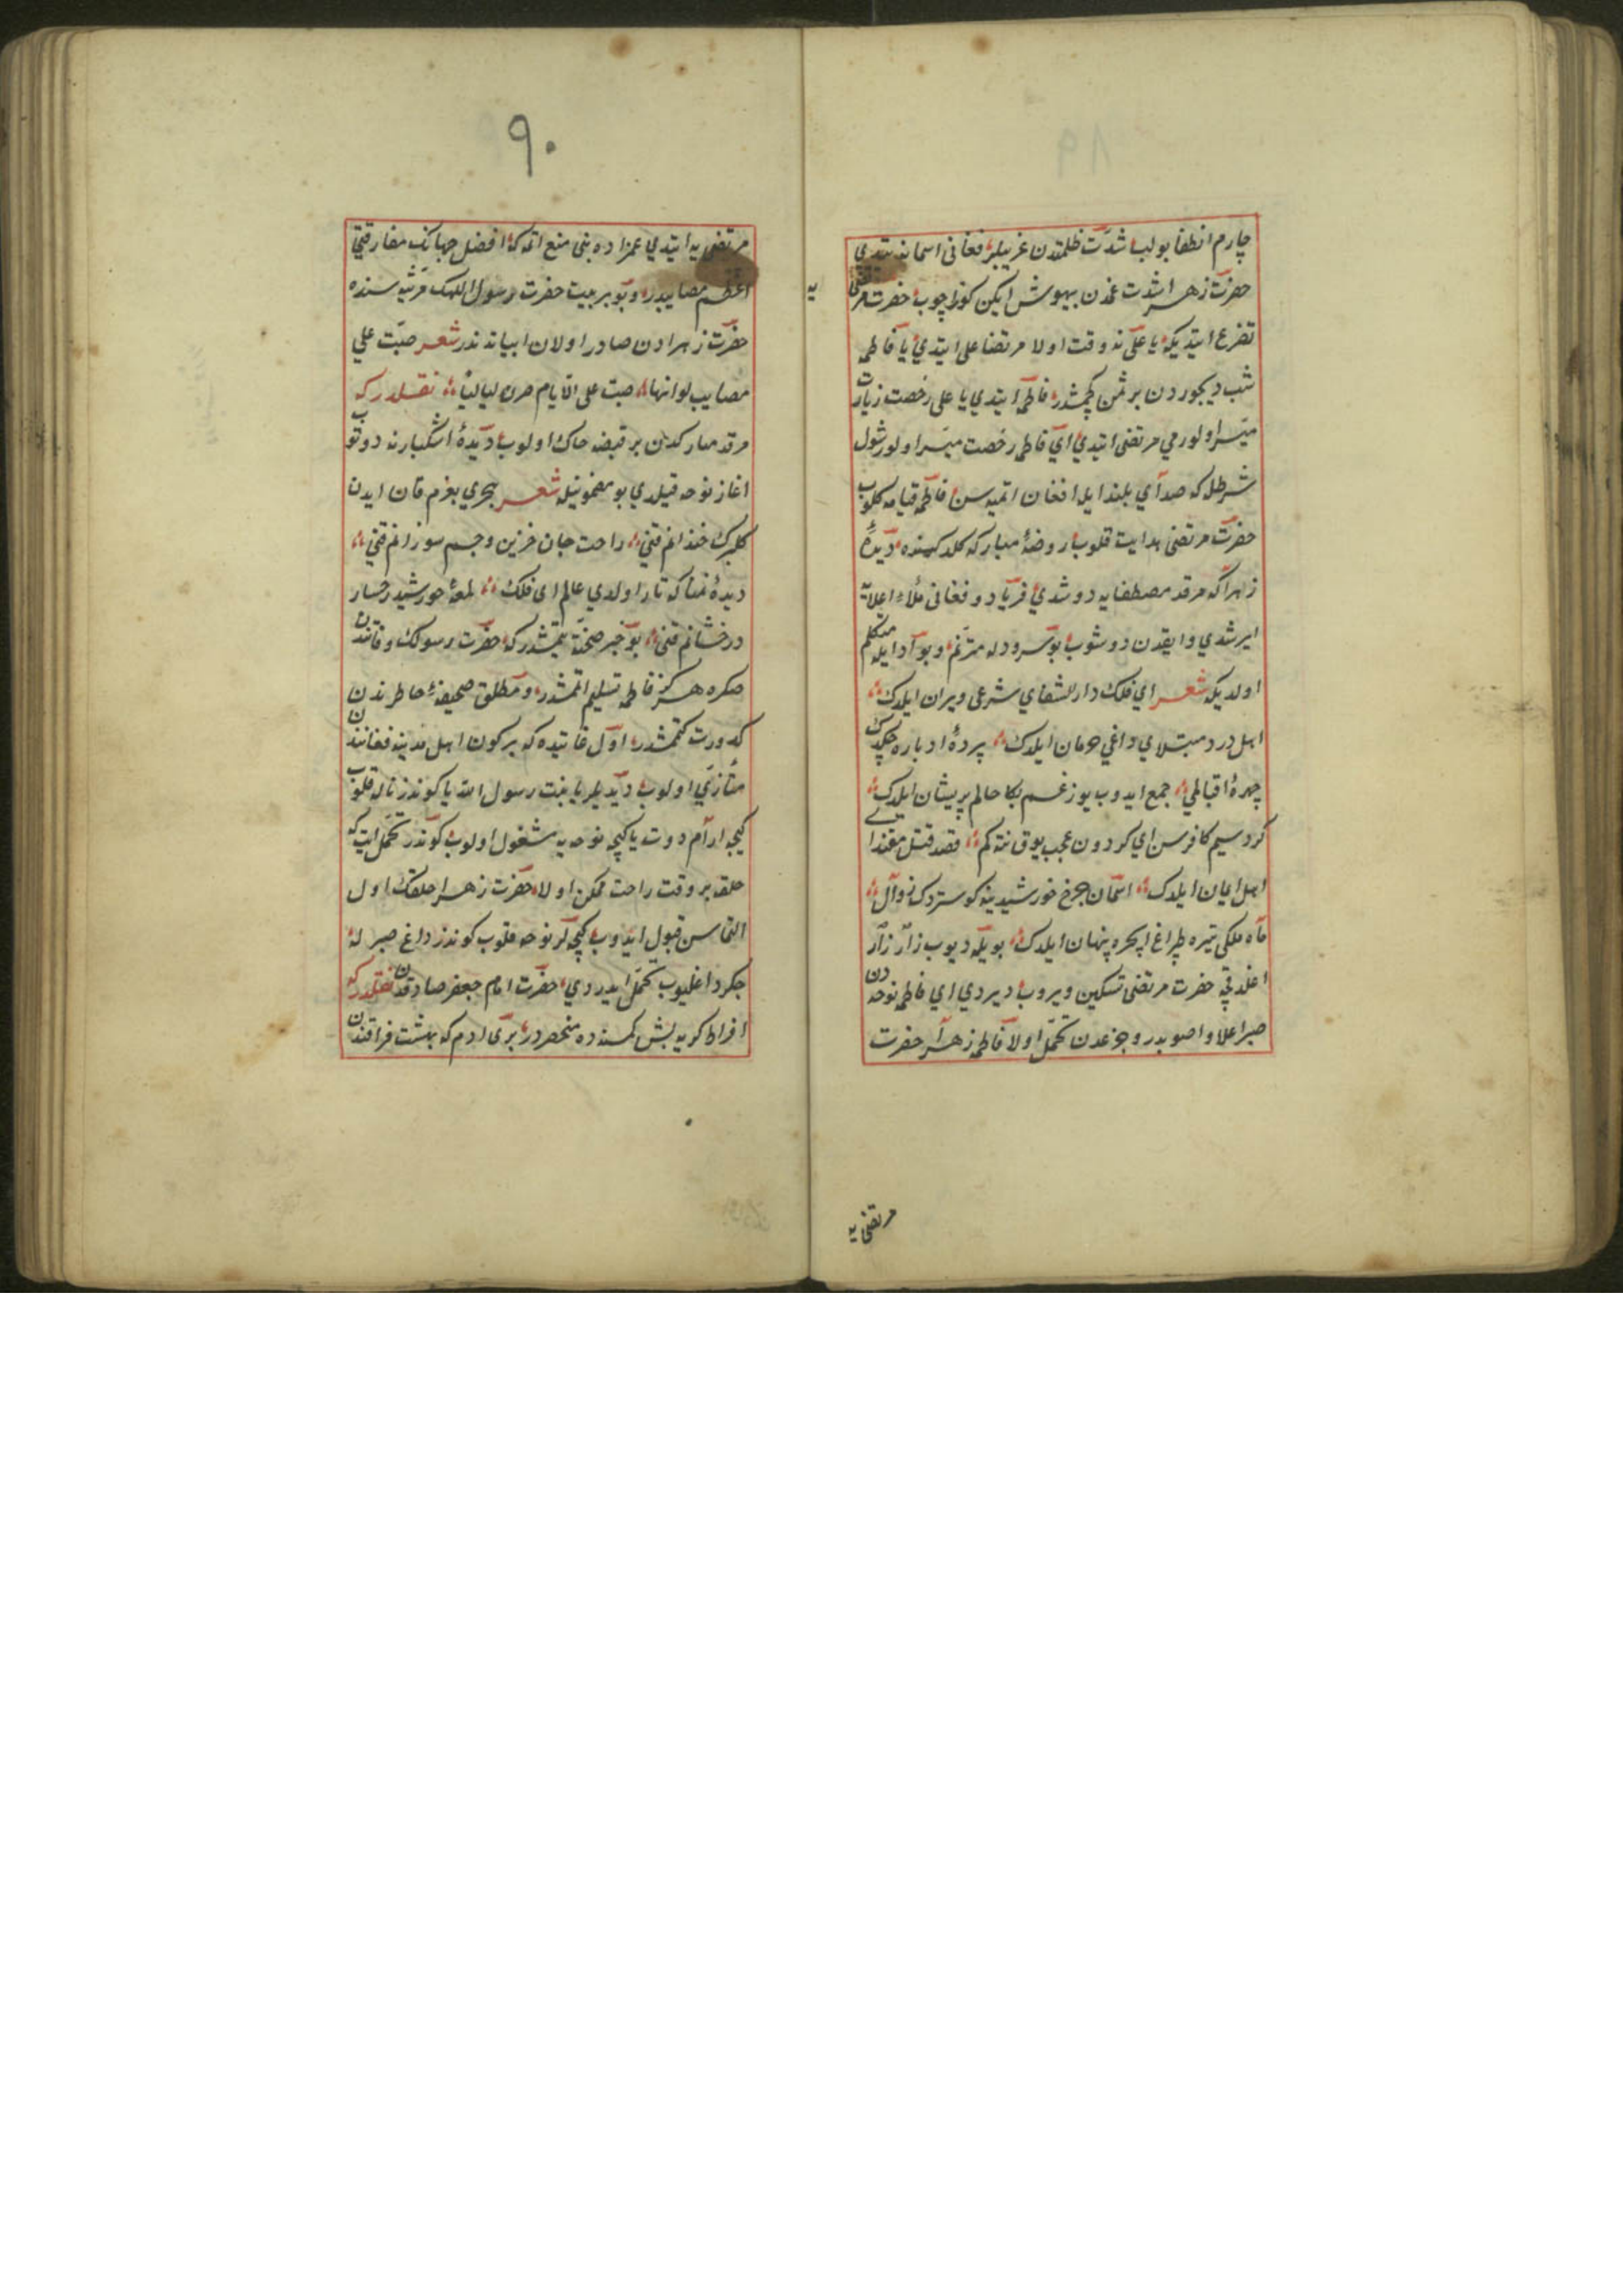 چارم انطفا بولب شدّت ظلمتدن غریبلر فغانی اسمانه یتدی
حضرت زهرا شدت غمدن بیهوش ایکن کوز اچوب حضرت مرتضی
یه
تضرع ایتدیکه یا علی نه وقت اولا مرتضا علی ایتدی یا فاطمه
شب دیجوردن بر ثمن کچمشدر فاطمه ایتدی یا علی رخصت زیارت
میسر اولورمی مرتضی ایتدی ای فاطمه رخصت میسر اولور شول
شرطله که صدای بلند ایله افغان اتمیه سن فاطمه قیامه کلوب
حضرت مرتضی هدایت قلوب روضهٔ مبارکه کلدکهنده دیدهٔ
زهرا که مرقد مصطفایه دوشدی فریاد و فغانی ملأ اعلایه
ایرشدی و ایقدن دوشوب بو سرودله مترنم و بو ادا ایله متکلم
اولدیکه شعر ای فلک دار الشفای شرعی ویران ایلدک
اهل درد مبتلای داغی حرمان ایلدک پردهٔ ادباره چکدک
چهرهٔ اقبالمی جمع ایدوب یوز غم بکا حالم پریشان ایلدک
کر دسیم کافرسن ای کردون عجب یوق نته کم قصد قتل مقتدای
اهل ایمان ایلدک اسمان چرخ خورشیدینه کوستردک زوال
ماه ملکی تیره طپراغ ایچره پنهان ایلدک بویله دیوب زار زار
اغلدقچه حضرت مرتضی تسکین ویروب دیردی ای فاطمه نوحه دن
صبر اعلا و اصوبدر و جزعدن تحمّل اولا فاطمه زهرا حضرت
مرتضی یه
۹۰
مرتضی یه ایتدی عمزاده بنی منع اتمه که افضل جهانک مفارقتی
اعظم مصایبدر و بو بر بیت حضرت رسول اللهک مرثیه سنده
حضرت زهرادن صادر اولان ابیاتدندر شعر صبّت علی
مصایب لو انها صبت علی الایام صرن لیالیاً نقلدر که
مرقد مبارکدن بر قبضه خاک اولوب دیدهٔ اشکبارنه دوتوب
اغاز نوحه قیلدی بو مضمونیله شعر هجری بغرم قان ایدن
کلبرک خندانم قنی راحت جان حزین و جسم سوزانم قنی
دیدهٔ نمناکه تار اولدی عالم ای فلک لمعهٔ خورشید رخسار
درخشانم قنی بو خبر صحّته یتمشدر که حضرت رسولک وفاتندن
صکره هرکز فاطمه تسلیم اتمشدر و مطلق صحیفهٔ خاطرندن
کدورت کتمشدر اول غایتده که بر کون اهل مدینه فغانندن
متأزی اولوب دیدیلر یا بنت رسول الله یا کوندز ناله قلوب
کیجه ارام دوت یا کیجه نوحه یه مشغول اولوب کوندز تحمّل ایت که
خلقه بر وقت راحت ممکن اولا حضرت زهرا خلقک اول
التماسن قبول ایدوب کیجه لر نوحه قلوب کوندز داغ صبرله
جکر داغلیوب تحمّل ایدردی حضرت امام جعفر صادقدن نقلدر که
افراط کریه بش کمسنده منحصردر بری ادم که بهشت فراقندن